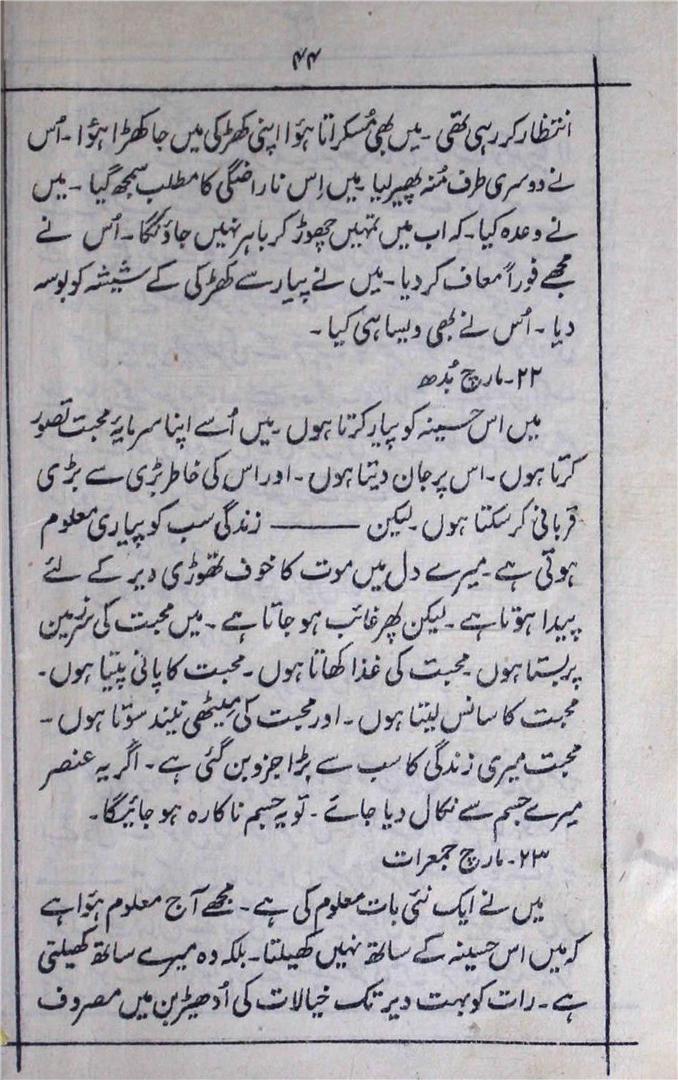 ۴۴
انتظار کر رہی تھی ۔ میں بھی مُسکراتا ہؤا اپنی کھڑکی میں جا کھڑا ہؤا ۔ اُس
نے دوسری طرف مُنہ پھیر لیا میں اِس ناراضگی کا مطلب سمجھ گیا ۔ میں
نے وعدہ کیا ۔ کہ اب میں تمہیں چھوڑ کر باہر نہیں جاؤنگا ۔ اُس نے
مجھے فوراً معاف کر دیا ۔ میں نے پیار سے کھڑکی کے شیشہ کو بوسہ
دیا ۔ اُس نے بھی ویسا ہی کیا ۔
۲۲ ۔ مارچ بُدھ
میں اس حسینہ کو پیار کرتا ہوں ۔ میں اُسے اپنا سرمایۂ محبت تصور
کرتا ہوں ۔ اس پر جان دیتا ہوں ۔ اور اس کی خاطر بڑی سے بڑی
قربانی کر سکتا ہوں ۔ لیکن ——— زندگی سب کو پیاری معلوم
ہوتی ہے ۔ میرے دل میں موت کا خوف تھوڑی دیر کے لئے
پیدا ہوتا ہے ۔ لیکن پھر غائب ہو جاتا ہے ۔ میں محبت کی سرزمین
پر بستا ہوں ۔ محبت کی غذا کھاتا ہوں ۔ محبت کا پانی پیتا ہوں ۔
محبت کا سانس لیتا ہوں ۔ اور محبت کی میٹھی نیند سوتا ہوں ۔
محبت میری زندگی کا سب سے بڑا جزو بن گئی ہے ۔ اگر یہ عنصر
میرے جسم سے نکال دیا جائے ۔ تو یہ جسم ناکارہ ہو جائیگا ۔
۲۳ ۔ مارچ جمعرات
میں نے ایک نئی بات معلوم کی ہے ۔ مجھے آج معلوم ہؤا ہے
کہ میں اس حسینہ کے ساتھ نہیں کھیلتا ۔ بلکہ وہ میرے ساتھ کھیلتی
ہے ۔ رات کو بہت دیر تک خیالات کی اُدھیڑ بن میں مصروف